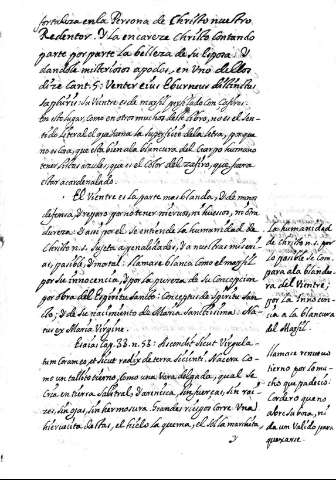 fortaleza en la Persona de Christo nuestro
Redentor. Y la encarece Christo contando
parte por parte la belleza de su Esposa: y
dandole misteriosos apodos, en uno de ellos
dize Cant. 5: Venter eius eburneus distinctus
saphiris. Su Vientre es de marfil con Zafiros.
En este lugar, como en otros muchos deste libro, no es el sen-
tido literal el que suena la superficie de la letra, porque
no es cosa, que esta bien a la blancura del Cuerpo humano
tener listas azules, que es el Color del zafiro, que para
estar acardenalado.
El Vientre es la parte mas blanda, y de menos
defensa, y reparo por no tener niervos, ni huesos, ni otra
dureza. Y assi por el se entiende la humanidad de
Christo n. s. sujeta a penalidades, y a nuestras miseri-
as, pasible, y mortal. llamase blanca como el marfil
por su innocencia, y por la pureza de su Concepcion,
por obra del Espiritu Santo: Conceptus de Spiritu San-
cto, y de su nacimiento de Maria Santissima: Na-
tus ex Maria Virgine.
Esaias Cap. 53. n. 53: Ascendit sicut Virgul-
tum coram eo, et sicut radix de terra sitienti. Nacera Co-
mo un tallito tierno, como una Vara delgada, qual se
Cria en tierra salitral, y arenisca, sin fuerças, sin rai-
zes, sin ojas, sin hermosura. Grandes riesgos corre Una
hiervecita destas, el hielo la quema, el Sol la marchita,
y
la humanidad
de Christo n. s. por
lo pasible se Com-
para a la blandu-
ra del Vientre;
por la innocen-
cia a la blancura
del Marfil.
llamase renuevo
tierno por lo mu-
cho que padecio
Cordero que no
abre la boca, ni
da un Valido para
quexarse.